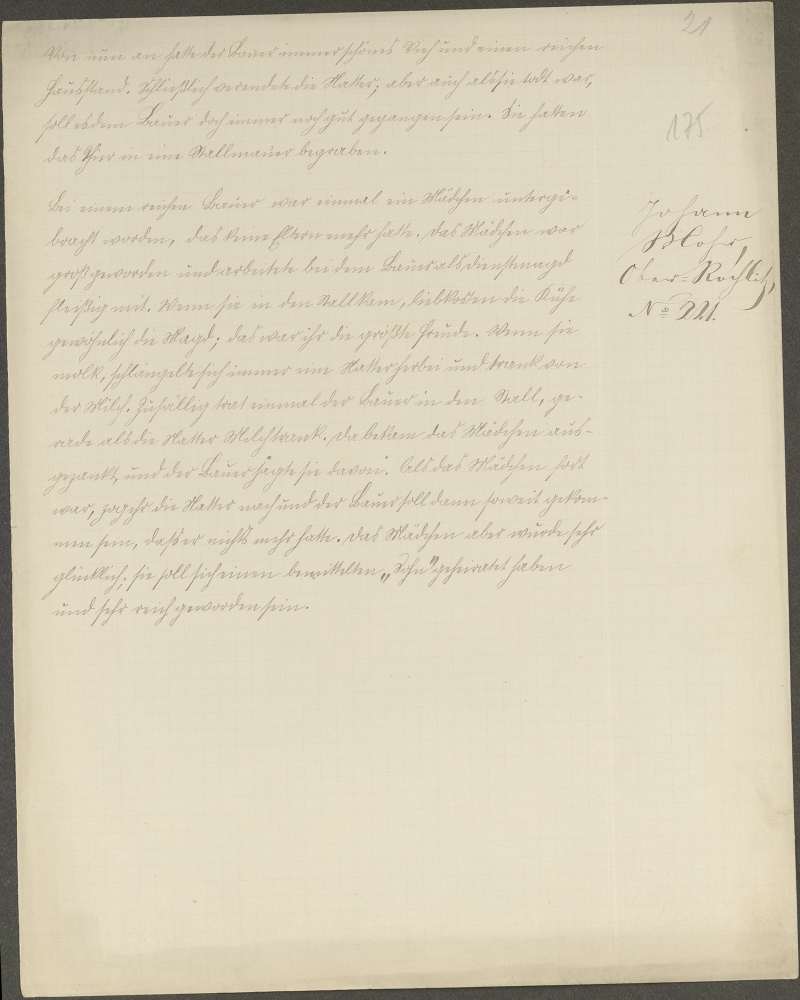 21
Von nun an hatte der Bauer immer schönes Vieh und einen reichen
Hausstand. Schließlich verendete die Natter; aber auch als sie todt war,
soll es dem Bauer doch immer noch gut gegangen sein. Sie hatten
das Thier in eine Stallmauer begraben.
175
Bei einem reichen Bauer war einmal ein Mädchen unterge-
bracht worden, das keine Eltern mehr hatte. Das Mädchen war
groß geworden und arbeitete bei dem Bauer als Dienstmagd
fleißig mit. Wenn sie in den Stall kam, liebkosten die Kühe
gewöhnlich die Magd; das war ihr die größte Freude. Wenn sie
molk, schlängelte sich immer eine Natter herbei und trank von
der Milch. Zufällig trat einmal der Bauer in den Stall, ge-
rade als die Natter Milch trank. Da bekam das Mädchen aus-
gezankt, und der Bauer jagte sie davon. Als das Mädchen fort
war, zog ihr die Natter nach und der Bauer soll dann soweit gekom-
men sein, daß er nichts mehr hatte. Das Mädchen aber wurde sehr
glücklich; sie soll sich einen bemittelten „Sohn“ geheiratet haben
und sehr reich geworden sein.
Johann
Mohr,
Ober-Rochlitz,
No 221.